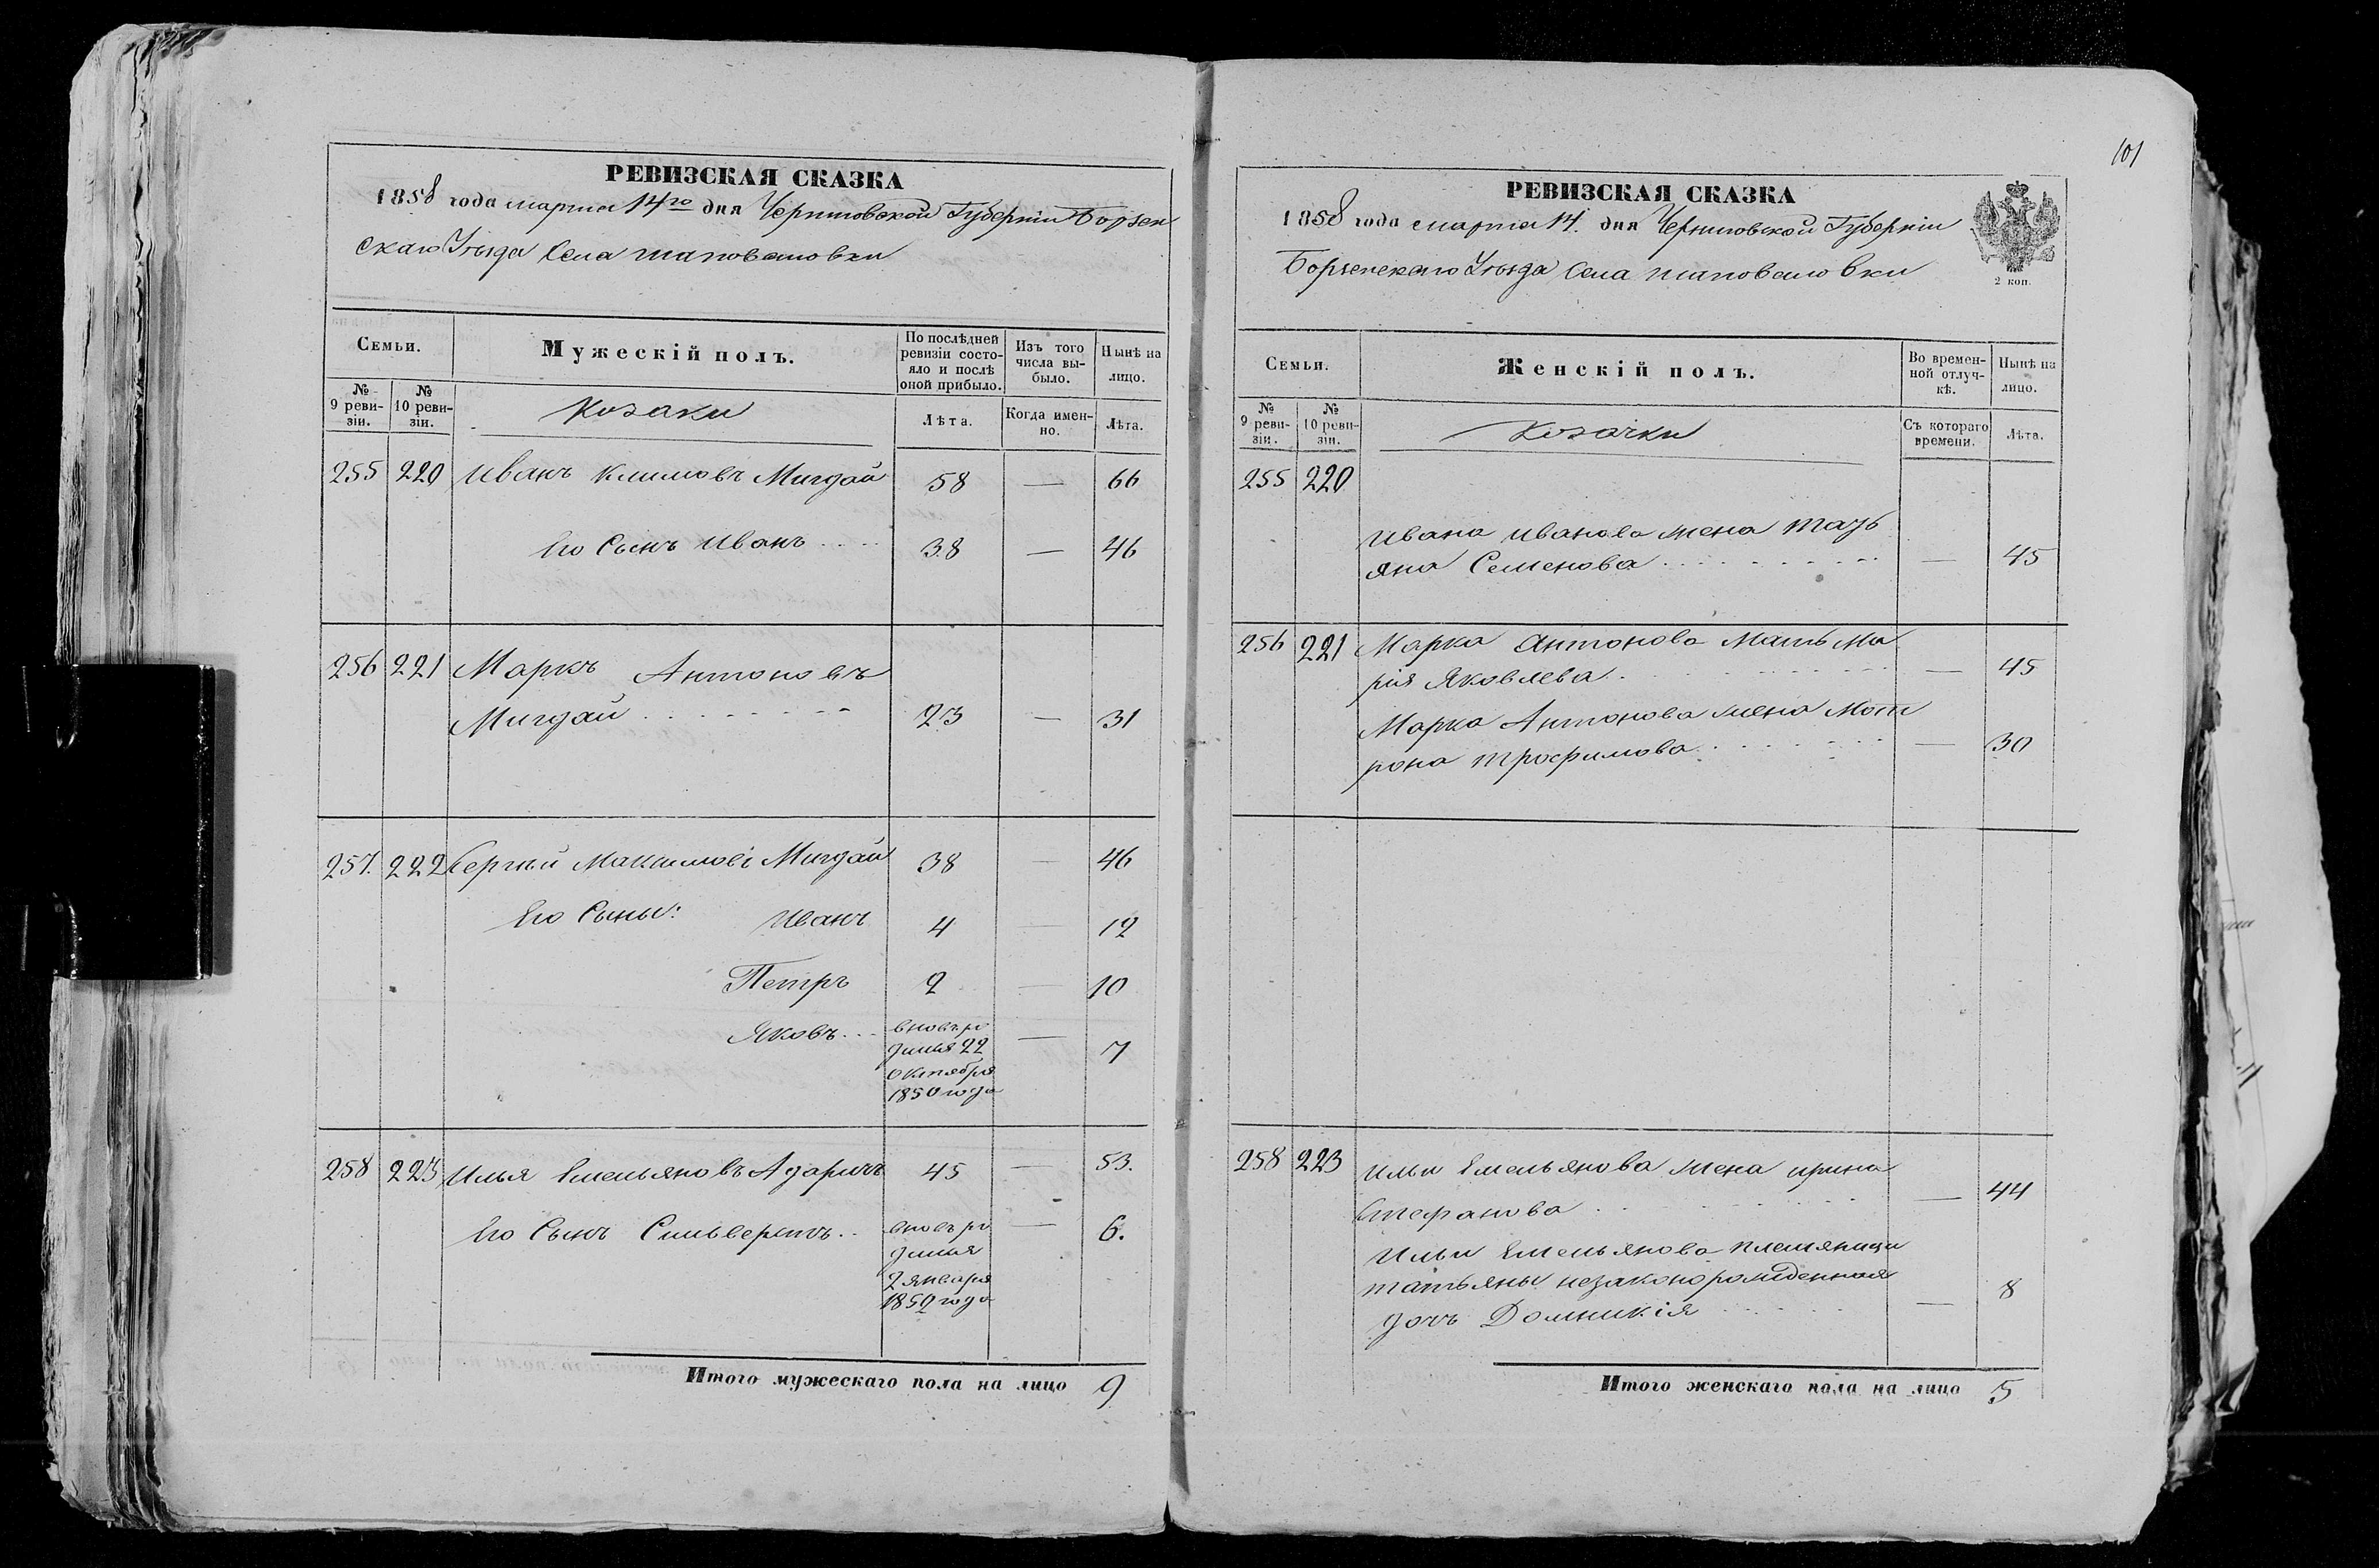 101
РЕВИЗСКАЯ СКАЗКА
1858 года марта 14го дня Черниговской Губерніи Борзен
скаго Уѣзда Села Шаповаловки
Семьи.
Мужескій полъ.
По послѣдней ревизіи состояло и послѣ оной прибыло.
Изъ того числа выбыло.
Нынѣ на лицо.
№ 9 ревизіи.
№ 10 ревизіи.
Козаки
Лѣта.
Когда именно.
Лѣта.
255 220 Иванъ Климовъ Мигдай 58 — 66
Его Сынъ Иванъ 38 — 46
256 221 Маркъ Антоновъ
Мигдай 23 — 31
257. 222 Сергѣй Максимовъ Мигдай 38 — 46
Его Сыны: Иванъ 4 — 12
Петръ 2 — 10
Яковъ вновь ро — 7
дился 22
октября
1850 года
258 223 Илья Емельяновъ Адаричъ 45 — 53.
Его Сынъ Сильверстъ вновь ро — 6.
дился
2 января
1852 года
Итого мужескаго пола на лицо 9
РЕВИЗСКАЯ СКАЗКА
1858 года марта 14. дня Черниговской Губерніи
Борзенскаго Уѣзда Села Шаповаловки
2 коп.
Семьи.
Женскій полъ.
Во временной отлучкѣ.
Нынѣ на лицо.
№ 9 ревизіи.
№ 10 ревизіи.
Козачки
Съ котораго времени.
Лѣта.
255 220
Ивана Иванова жена Тать
яна Семенова — 45
256 221 Марка Антонова мать Ма
рія Яковлева — 45
Марка Антонова жена Мот
рона Трофимова — 30
258 223 Ильи Емельянова жена Ирина
Стефанова — 44
Ильи Емельянова племяници
Татьяны незаконорожденная
дочь Домникія — 8
Итого женскаго пола на лицо 5